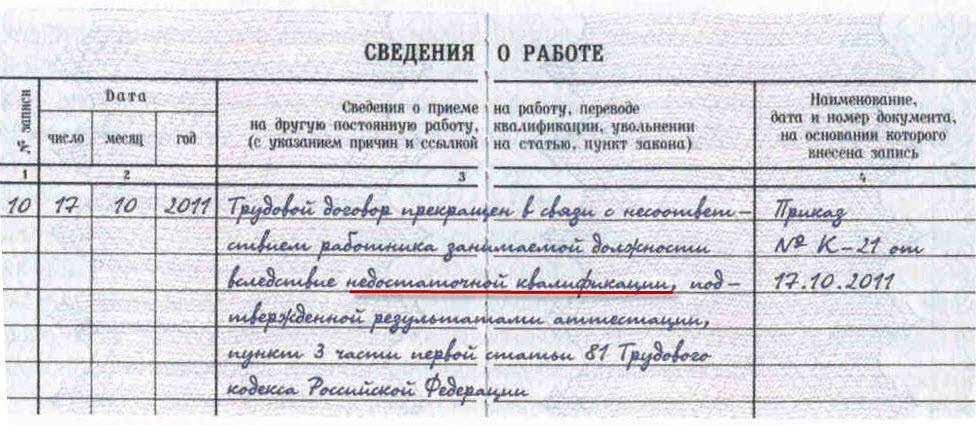 СВЕДЕНИЯ О РАБОТЕ
№ записи
Дата
число месяц год
Сведения о приеме на работу, переводе
на другую постоянную работу, квалификации, увольнении
(с указанием причин и ссылкой на статью, пункт закона)
Наименование,
дата и номер документа,
на основании которого
внесена запись
1 2 3 4
10 17 10 2011 Трудовой договор прекращен в связи с несоответ- Приказ
ствием работника занимаемой должности № К-21 от
вследствие недостаточной квалификации, под- 17.10.2011
твержденной результатами аттестации,
пункт 3 части первой статьи 81 Трудового
кодекса Российской Федерации